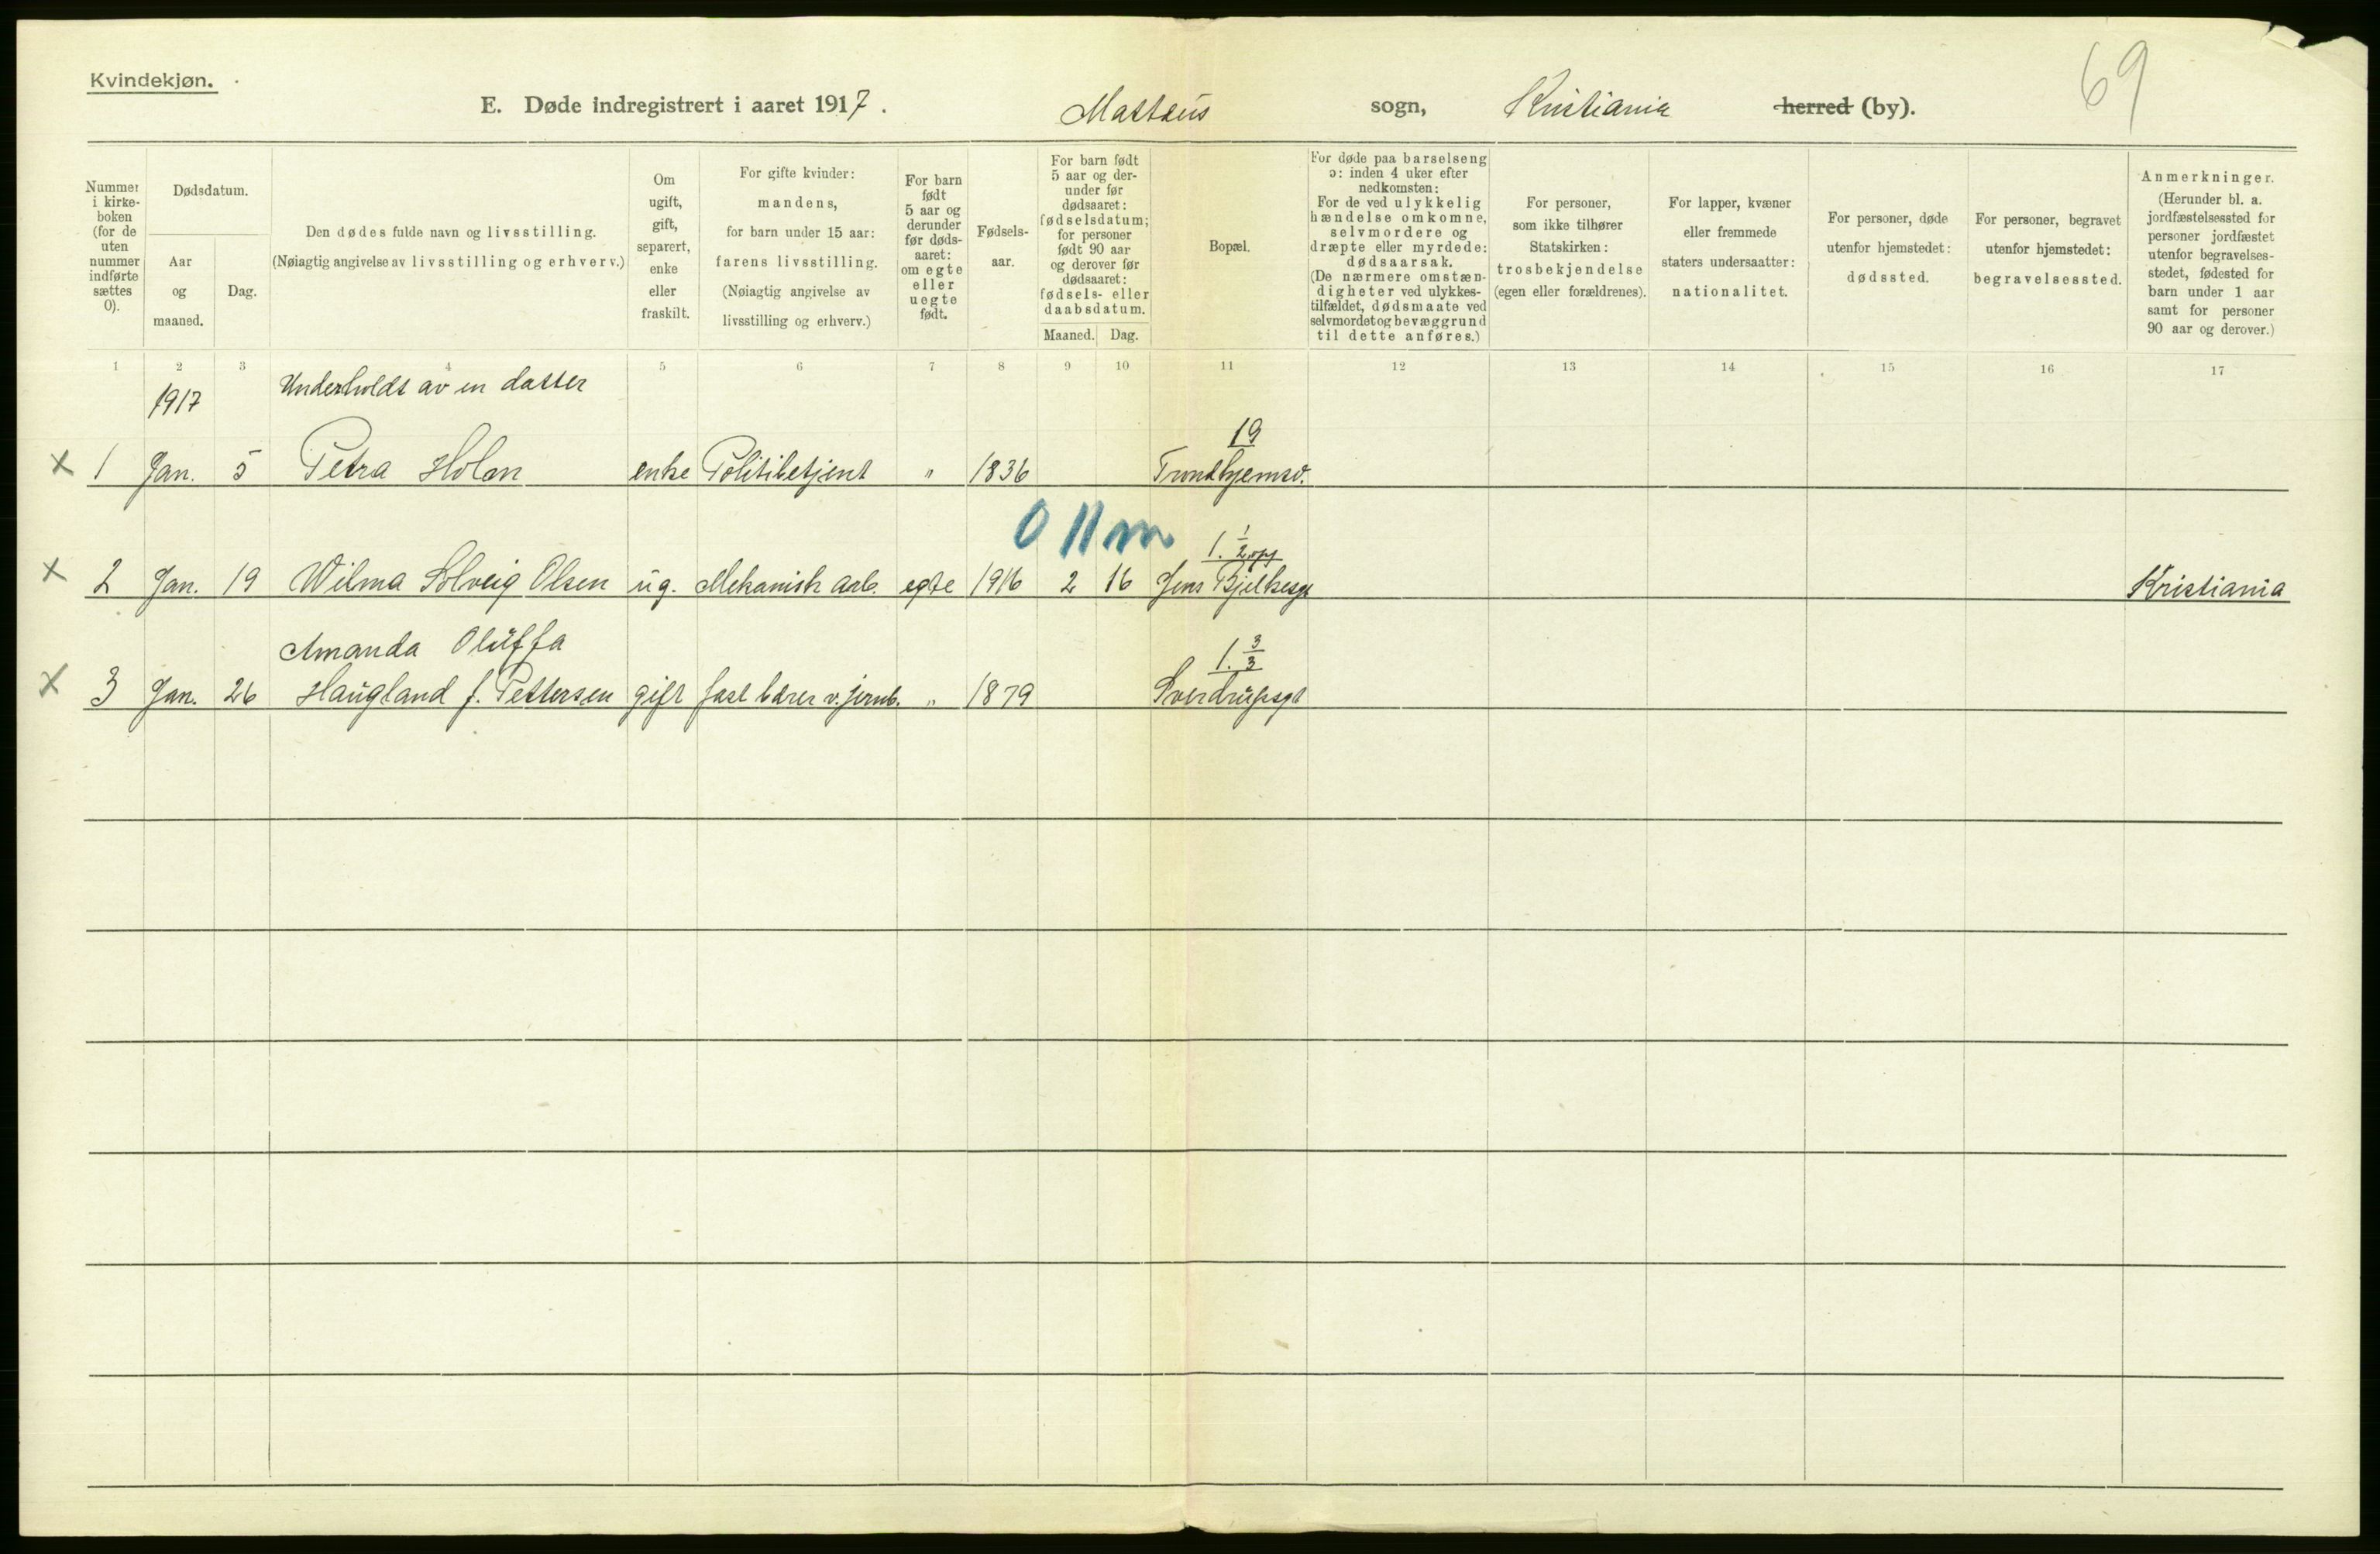 Kvindekjøn.
E. Døde indregistrert i aaret 1917. Mattæus sogn, Kristiania herred (by).
69
Nummer i kirke-boken (for de uten nummer indførte sættes 0).
Dødsdatum.
Aar og maaned.
Dag.
Den dødes fulde navn og livsstilling.
(Nøiagtig angivelse av livsstilling og erhverv.)
Om ugift, gift, separert, enke eller fraskilt.
For gifte kvinder: mandens, for barn under 15 aar: farens livsstilling. (Nøiagtig angivelse av livsstilling og erhverv.)
For barn født 5 aar og derunder før døds-aaret: om egte eller uegte født.
Fødsels-aar.
For barn født 5 aar og der-under før dødsaaret: fødselsdatum; for personer født 90 aar og derover før dødsaaret: fødsels- eller daabsdatum.
Maaned. Dag.
Bopæl.
For døde paa barselseng ɔ: inden 4 uker efter nedkomsten: For de ved ulykkelig hændelse omkomne, selvmordere og dræpte eller myrdede: dødsaarsak. (De nærmere omstæn-digheter ved ulykkes-tilfældet, dødsmaate ved selvmordet og bevæggrund til dette anføres.)
For personer, som ikke tilhører Statskirken: trosbekjendelse (egen eller forældrenes).
For lapper, kvæner eller fremmede staters undersaatter: nationalitet.
For personer, døde utenfor hjemstedet: dødssted.
For personer, begravet utenfor hjemstedet: begravelsessted.
Anmerkninger. (Herunder bl. a. jordfæstelsessted for personer jordfæstet utenfor begravelses-stedet, fødested for barn under 1 aar samt for personer 90 aar og derover.)
1 2 3 4 5 6 7 8 9 10 11 12 13 14 15 16 17
1917 Underholdt av en datter
19
x 1 Jan. 5 Petra Holm enke Politibetjent " 1836 Trondhjemsv.
0 11 m
1. 1/2 opg
x 2 Jan. 19 Wilma Solveig Olsen ug. Mekanisk arb. egte 1916 2 16 Jens Bjelkesgt Kristiania
Amanda Oluffa 1. 3/3
x 3 Jan. 26 Haugland f. Pettersen gift fast bærer v. jernb. " 1879 Sverdrupsgt